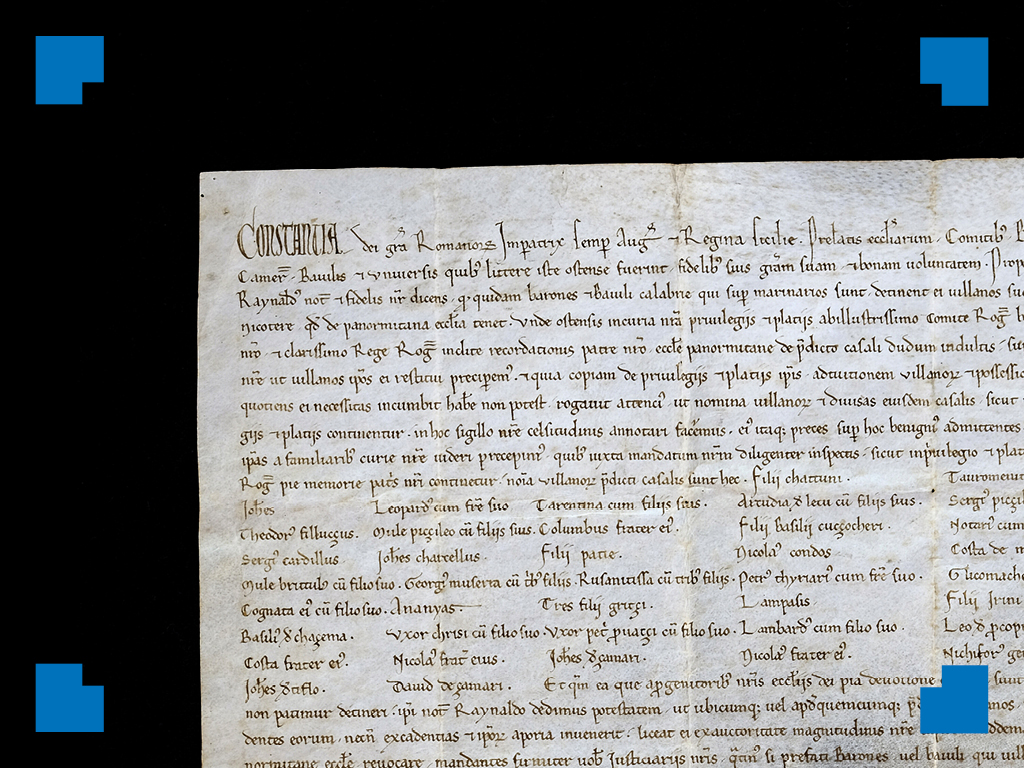 CONSTANTIA dei gra Romanor Imperatrix semper Aug et Regina Sicilie. Prelatis eccliarum. Comitib
Camer. Baiulis et universis quib littere iste ostense fuerint fidelib suis gram suam et bonam voluntatem.
Raynald not et fidelis nr dicens. q quidam barones et Baiuli calabrie qui sup marinarios sunt. detinent ei villanos
nicotere. qd de panormitana ecclia tenet. Unde ostensis in curia nra privilegiis et plateis ab illustrissimo Comite Rog
nro. et clarissimo Rege Rog inclite recordationis patre nro. eccle panormitane de pdicto casali dudum indultis.
nre ut villanos ipos ei restitui precipem. et quia copiam de privilegiis et plateis ipis. ad tuitionem villanor et possessio
quotiens ei necessitas incumbit habe non potest. rogavit attenci. ut nomina villanor et divisas eiusdem casalis. sicut
giis et plateis continentur. in hoc sigillo nre celsitudinis annotari facemus. ei itaq preces sup hoc benigni admittentes
ipas a familiarib curie nre videri precepim. quib iuxta mandatum nrm diligenter inspectis. sicut in privilegio et
Rog pie memorie patris nri continetur. noia villanor pdicti casalis sunt hec. Filii chattuni.
Johes Leopard cum fre suo Tarentina cum filiis suis. Arcudia d lecu cu filiis suis. Sergi
Theodor filluczus. Mule piccileo cu filiis suis. Columbus frater ei. Filii Basilii cuczocheri. Notari cum
Sergi cardillus Johes charcellus. Filii patie. Nicola condos Costa de
Mule britul cu filio suo. Georgi muserra cu filiis. Rusanussa cu trib filiis. Petr thyriari cum fre suo.
Cognata ei cu filio suo. Ananyas Tres filii gritzi. Lampasis. Filii Irini
Basili d chazema. Uxor chrisi cu filio suo. Uxor pet pvatzi cu filio suo. Lambard cum filio suo. Leo d
Costa frater ei. Nicola frat eius. Johes d zamari. Nicola frater ei. Nichifor
Johes d tiflo. David de zamari. Et qm ea que a pgenitorib nris ecclis dei pia devotione
non patimur detineri. ipi not Raynaldo dedimus potestatem. ut ubicumq vel apd quemcumq
dentes eorum. necn excadentias et ipor aporia invenerit. liceat ei ex auctoritate magnitudinis nre
normitane eccle revocare. mandantes firmiter vob Justiciariis nris. si prefati Barones vel baiuli qui